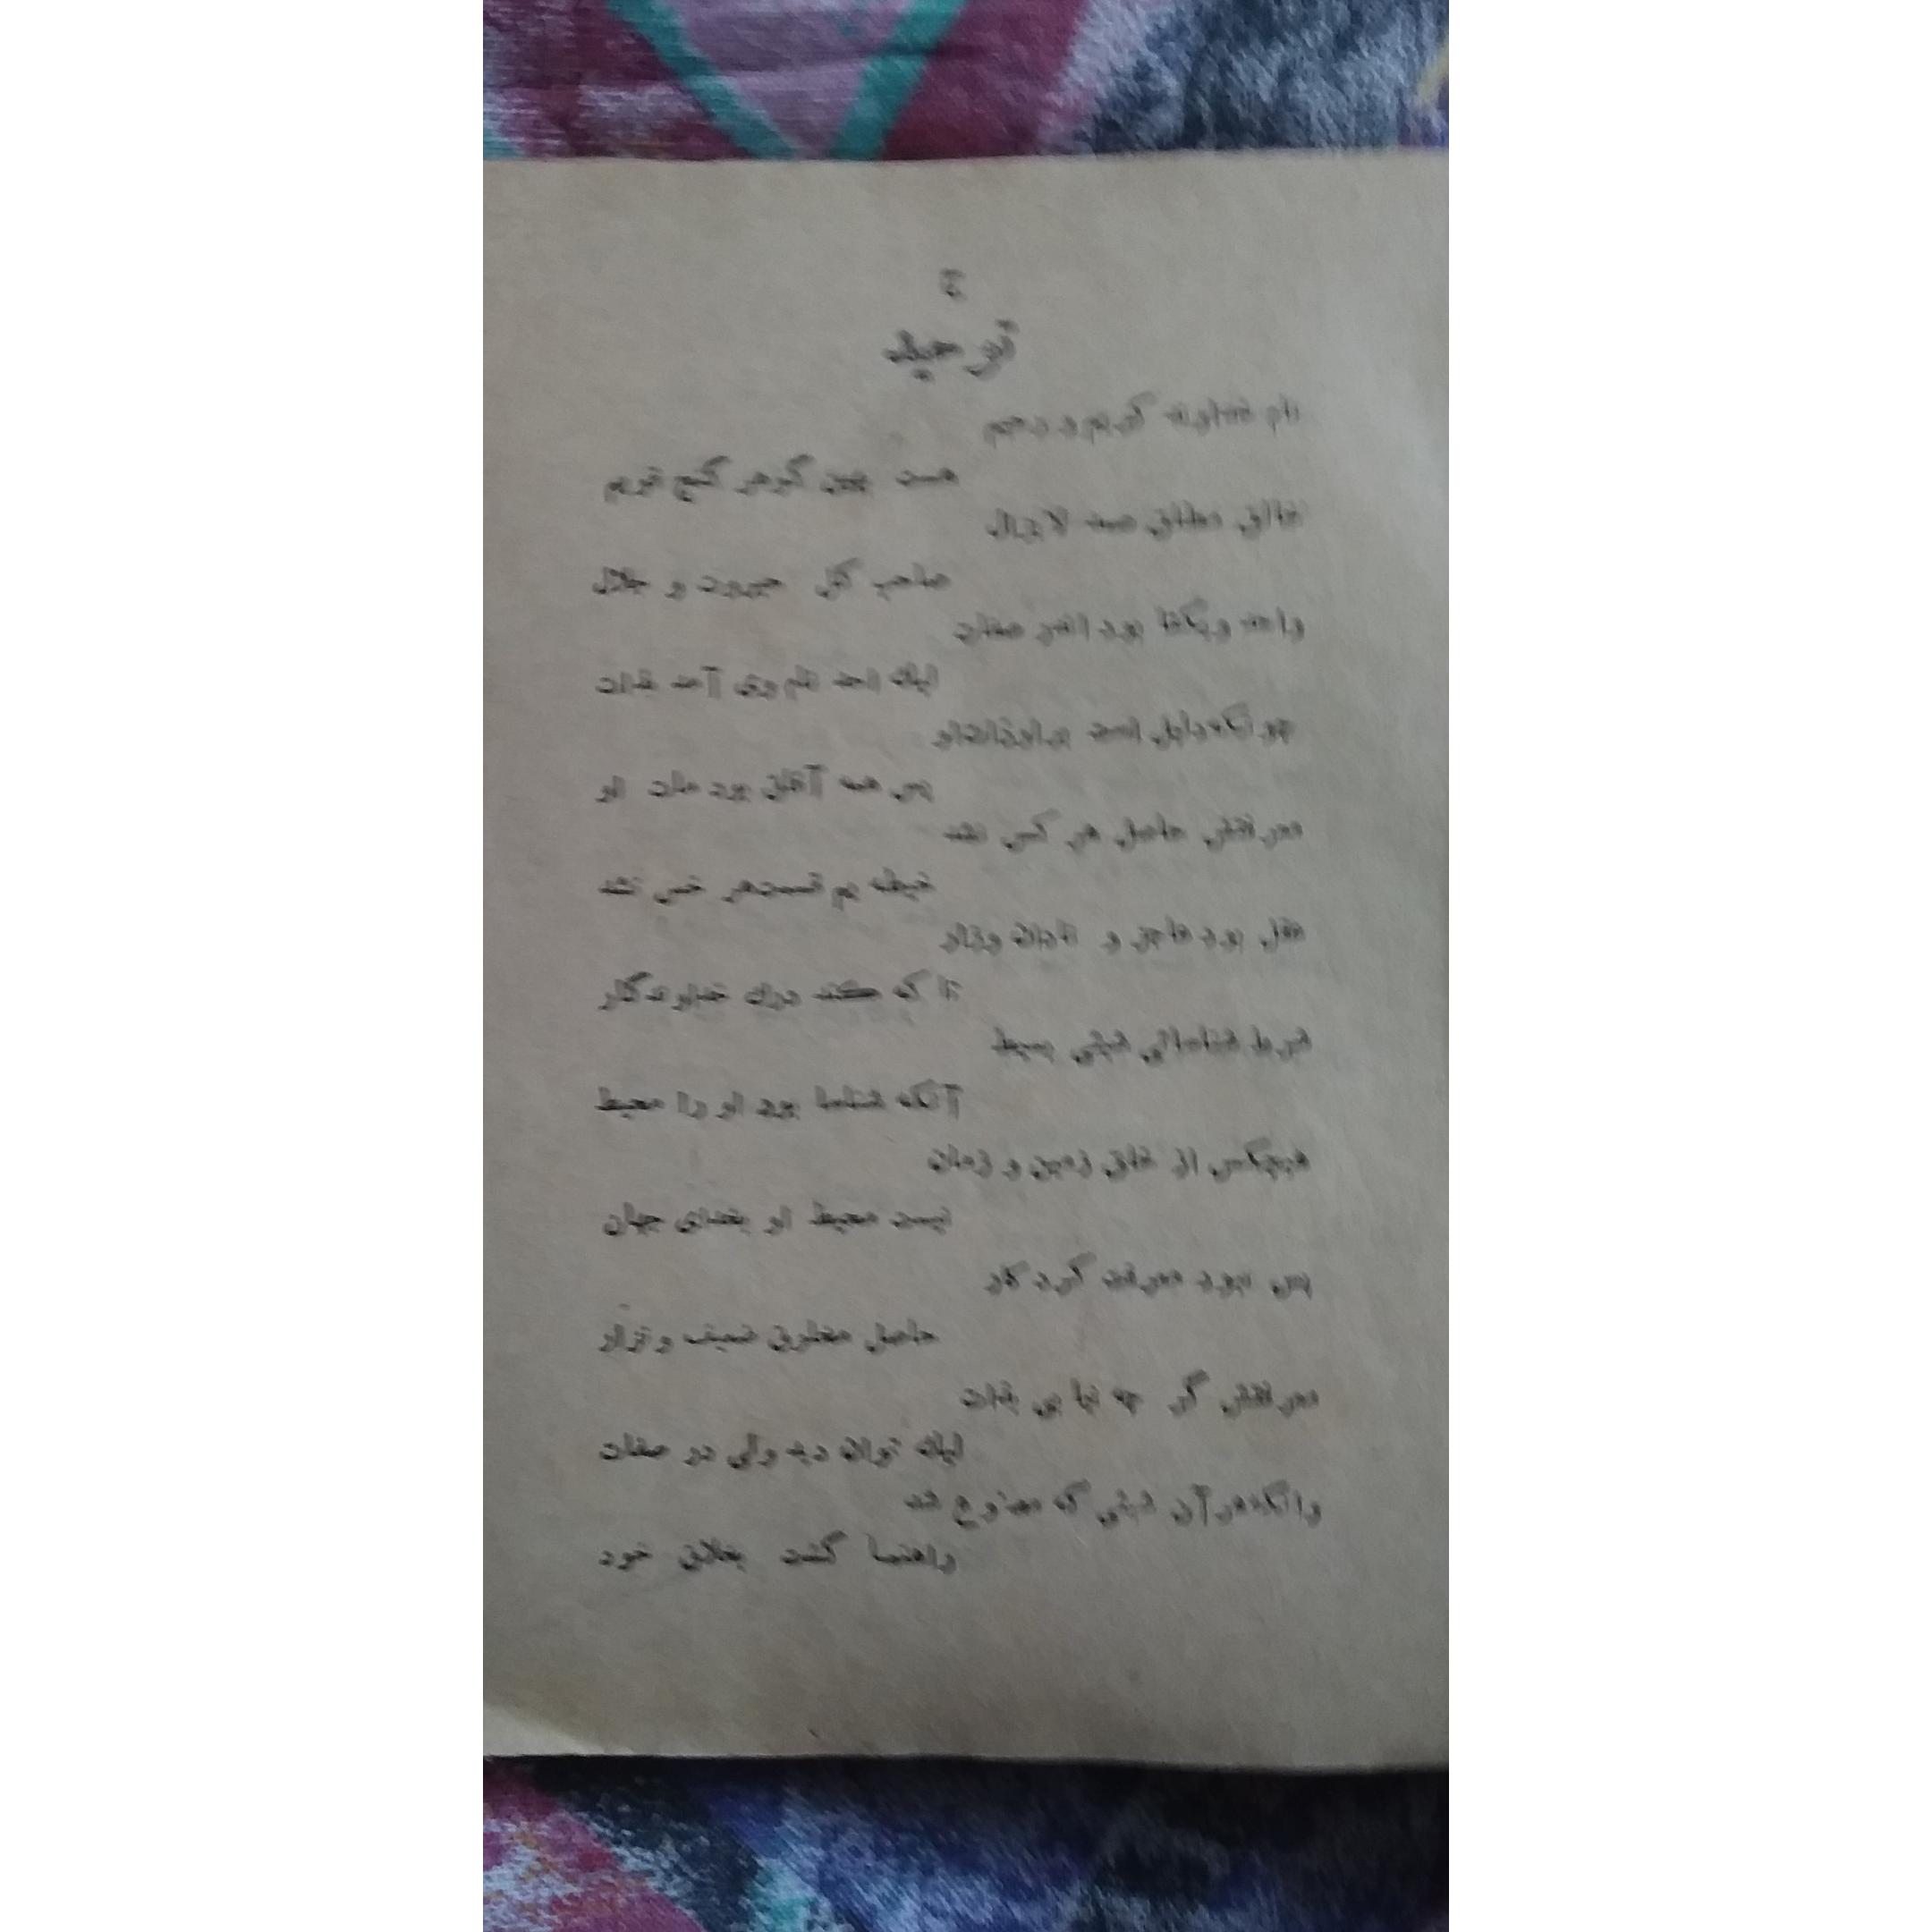 توحید
نام خداوند کریم و رحیم
هست بهین گوهر گنج قویم
خالق مطلق صمد لایزال
صاحب کل جبروت و جلال
واحد و یکتا بود اندر صفات
لیک احد نام وی آمد بذات
چونکه دلیل است بر او ذات او
پس همه آفاق بود مات او
معرفتش حاصل هر کس نشد
حیطه یم قسمت هر خس نشد
عقل بود عاجز و نادان و زار
تا که کند درک خداوندگار
شرط شناسائی شیئی بسیط
آنکه شناسا بود او را محیط
هیچکس از خلق زمین و زمان
نیست محیط او بخدای جهان
پس نبود معرفت کردگار
حاصل مخلوق ضعیف و نزار
معرفتش گر چه نیابی بذات
لیک توان دید ولی در صفات
وانگه هر آن شیئی که مصنوع شد
راهنما گشت بخلاق خود